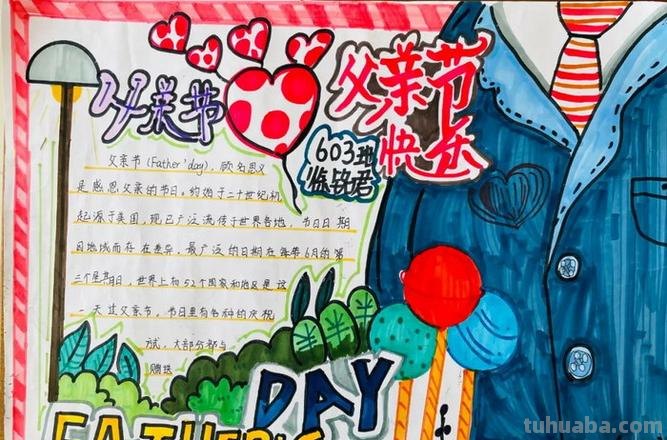 父亲节
父亲节
快乐
603班
父亲节(Father'day), 顾名思义
是感恩父亲的节日, 约始于二十世纪初
起源于美国, 现已广泛流传于世界各地, 节日日期
因地域而存在差异, 最广泛的日期在每年6月的第
三个星期日, 世界上和52个国家和地区是这
一天过父亲节, 节日里有各种的庆祝
方式, 大部分都与
赠送
DAY
FATHER'S
tuhuaba.com